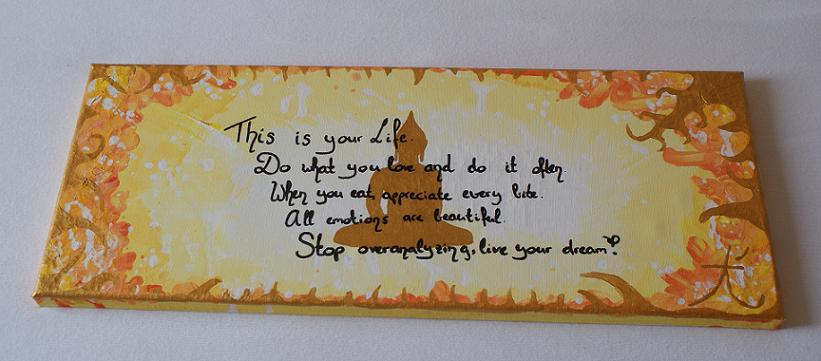 This is your Life.
Do what you love and do it often.
When you eat, appreciate every bite.
All emotions are beautiful.
Stop overanalyzing, live your dream
犬